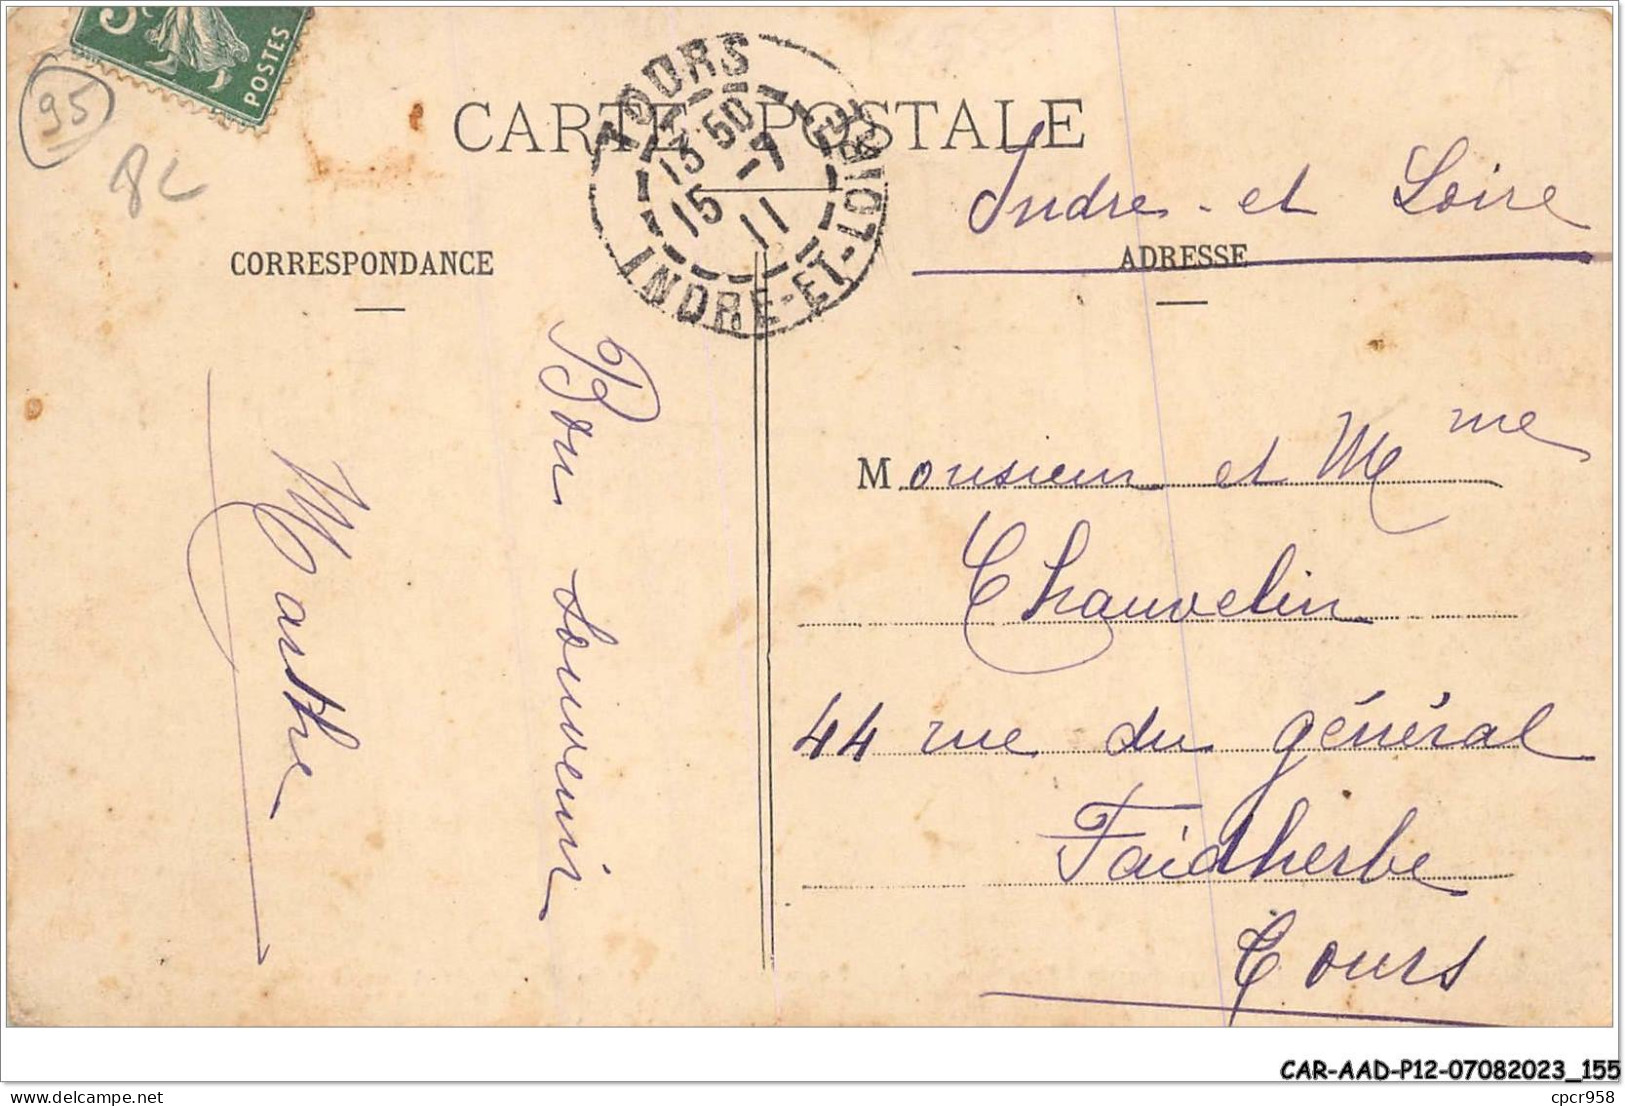 5
POSTES
95
8C
CARTE POSTALE
TOURS
13 50
15 -7
11
INDRE-ET-LOIRE
Indre-et Loire
CORRESPONDANCE
ADRESSE
Bon souvenir
Marthe
Monsieur et Mme
Chauvelin
44 rue du général
Faidherbe
Tours
CAR-AAD-P12-07082023_155
delcampe.net
cpcr958